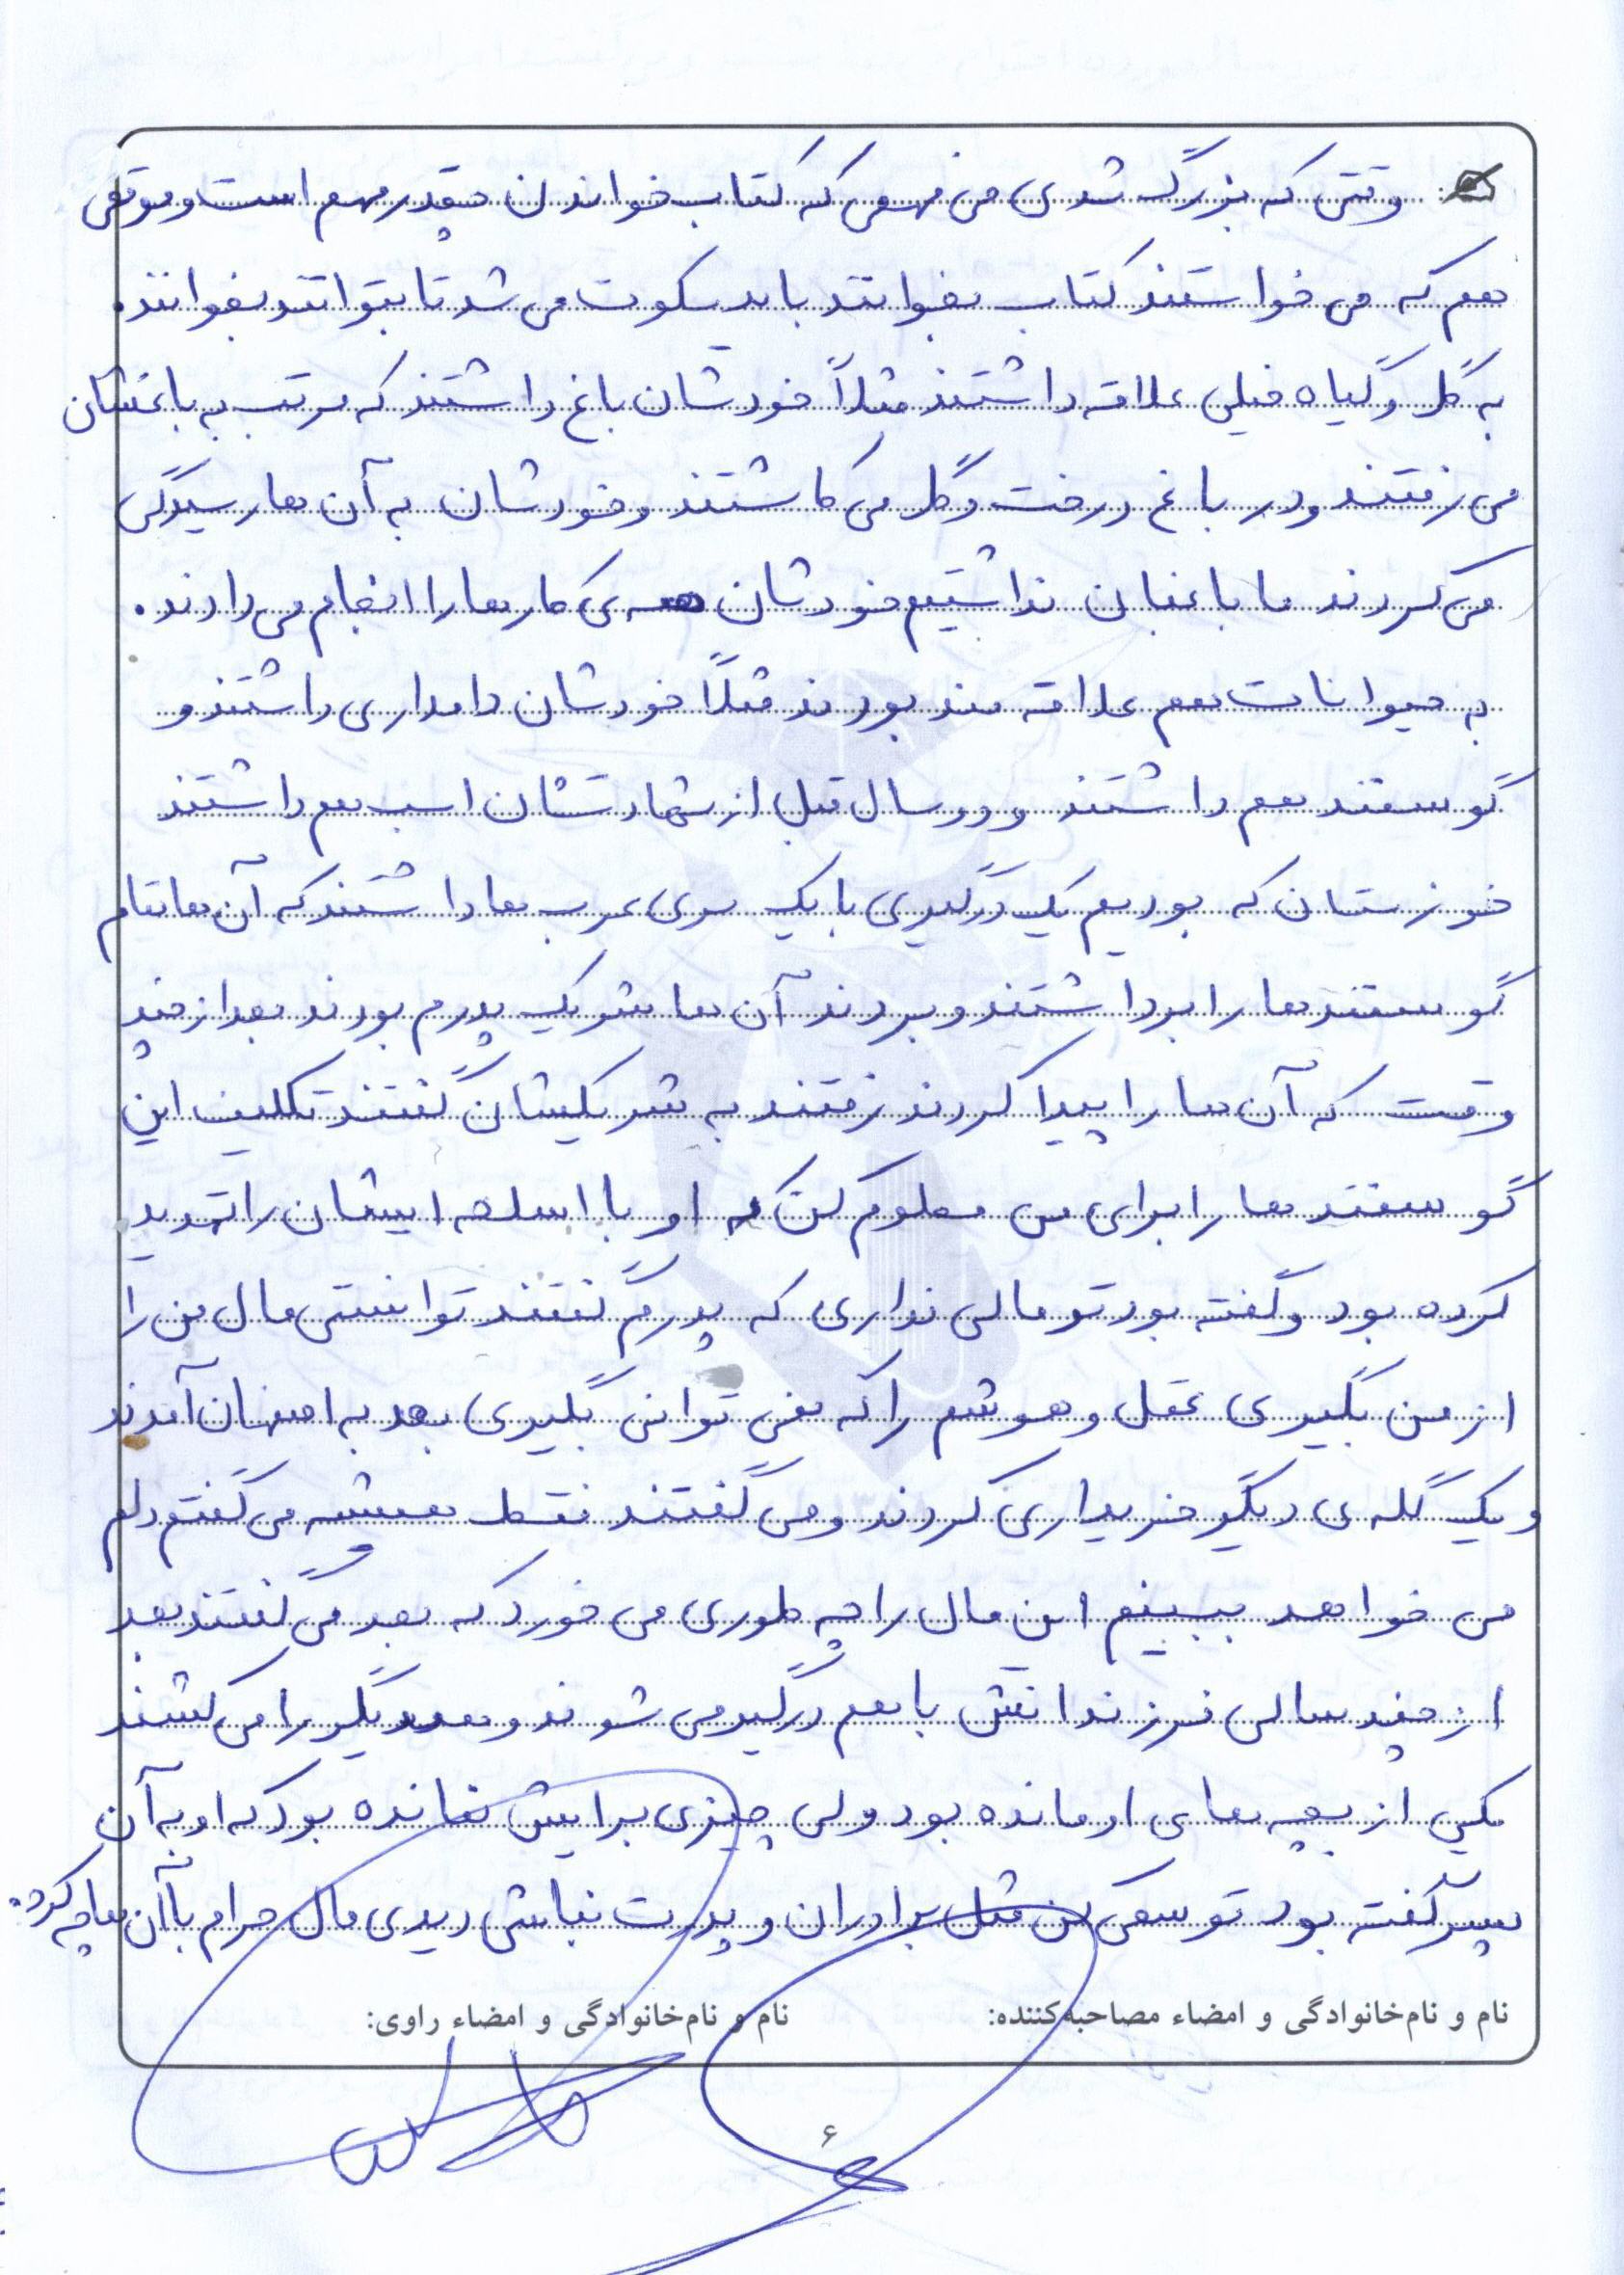 وقتی که بزرگ شدی می فهمی که کتاب خواندن چقدر مهم است و موقعی
هم که می خواستند کتاب بخوانند باید سکوت می شد تا بتوانند بخوانند.
به گل و گیاه خیلی علاقه داشتند مثلاً خودشان باغ داشتند که مرتب به باغشان
می رفتند و در باغ درخت و گل می کاشتند و خودشان به آن ها رسیدگی
می کردند ما باغبان نداشتیم خودشان همه ی کارها را انجام می دادند.
به حیوانات هم علاقه مند بودند مثلاً خودشان دامداری داشتند و
گوسفند هم داشتند و دو سال قبل از شهادتشان اسب هم داشتند
خوزستان که بودیم یک درگیری با یک سری عرب ها داشتند که آن ها تمام
گوسفندها را برداشتند و بردند آن ها شریک پدرم بودند بعد از چند
وقت که آن ها را پیدا کردند رفتند به شریکشان گفتند تکلیف این
گوسفندها را برای من معلوم کن که او با اسلحه ایشان را تهدید
کرده بود و گفته بود تو مالی نداری که پدرم گفتند توانستی مال من را
از من بگیری عقل و هوشم را که نمی توانی بگیری بعد به اصفهان آمدند
و یک گله ی دیگر خریداری کردند و می گفتند فقط همیشه می گفتم دلم
می خواهد ببینم این مال را چه طوری می خورد که بعد می گفتند بعد
از چند سالی فرزندانش با هم درگیر می شوند و همدیگر را می کشند
یکی از بچه های او مانده بود ولی چیزی برایش نمانده بود که او به آن
پسر گفته بود تو سعی کن مثل برادران و پدرت نباشی دیدی مال حرام با آن ها چه کرد.
نام و نام‌خانوادگی و امضاء مصاحبه‌کننده: نام و نام‌خانوادگی و امضاء راوی:
۶